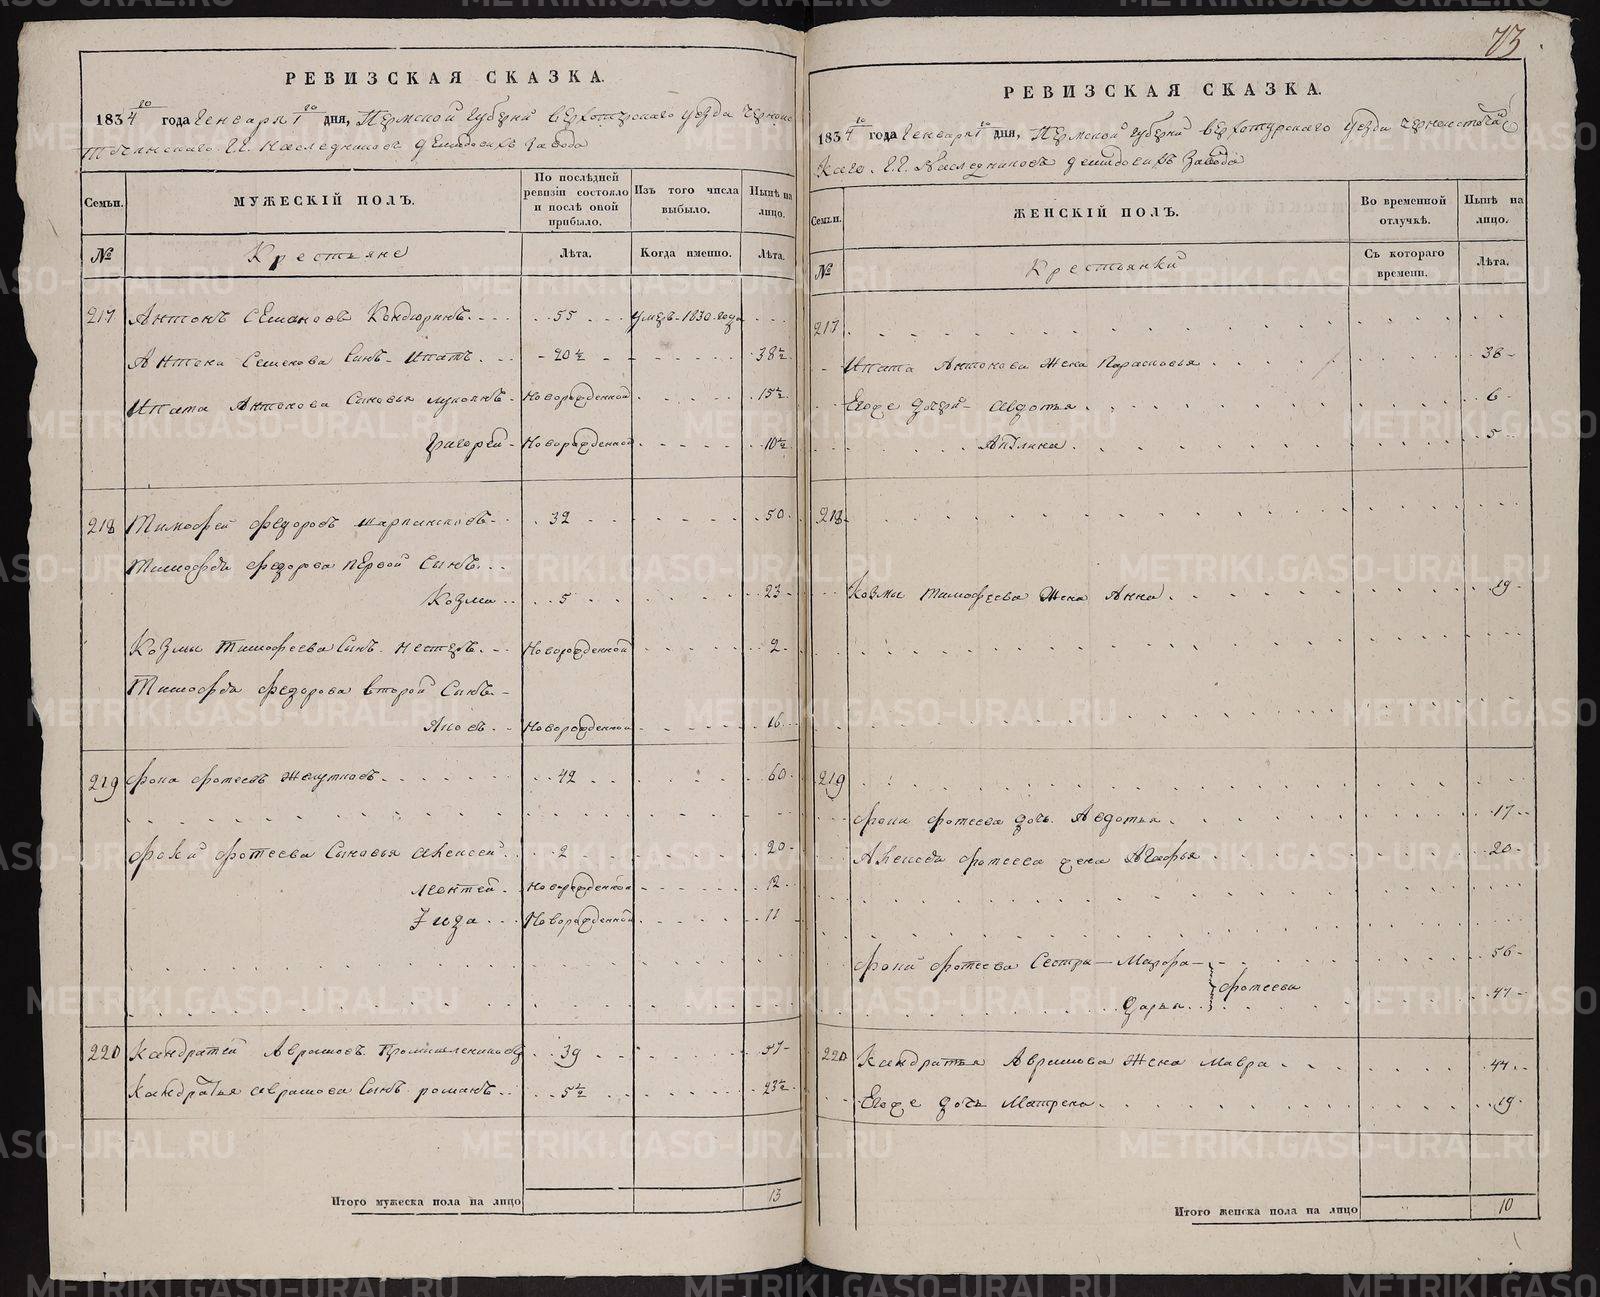 73
РЕВИЗСКАЯ СКАЗКА.
1834го года Генваря 1го дня, Пермской губернии Верхотурскаго уезда Черноис
точинскаго Г.Г. Наследниковъ Демидовыхъ завода
Семьи. МУЖЕСКІЙ ПОЛЪ. По послѣдней ревизіи состояло и послѣ оной прибыло. Изъ того числа выбыло. Нынѣ на лицо.
№ Крестьяне Лѣта. Когда именно. Лѣта.
217 Антонъ Семеновъ Кондюринъ 55 умеръ 1830 года
Антона Семенова сынъ Ипатъ 20½ 38½
Ипата Антонова сыновья Лукоянъ Новорожденной 15½
Григорей Новорожденной 10½
218 Тимофей Федоровъ 32 50
Тимофея Федорова первой сынъ
Козма 5 23
Козмы Тимофеева сынъ Нестеръ Новорожденной 2
Тимофея Федорова второй сынъ
Яковъ Новорожденной 16
219 Фока Фотеевъ 42 60
Фоки Фотеева сыновья Алексей 2 20
Леонтей Новорожденной 12
Новорожденной 11
220 Кандратей Аврамовъ Промышленниковъ 39 57
Кандратья Аврамова сынъ Романъ 5½ 23½
Итого мужеска пола на лицо 13
РЕВИЗСКАЯ СКАЗКА.
1834го года Генваря 1го дня, Пермской губернии Верхотурскаго уезда Черноисточинс
каго Г.Г. Наследниковъ Демидовыхъ завода
Семьи. ЖЕНСКІЙ ПОЛЪ. Во временной отлучкѣ. Нынѣ на лицо.
№ Крестьянки Съ котораго времени. Лѣта.
217
Ипата Антонова жена Парасковья 38
Егоже дочери Авдотья 6
5
218
Козмы Тимофеева жена Анна 19
219
Фоки Фотеева дочь Авдотья 17
Алексея Фотеева жена Агафья 20
Фоки Фотеева сестра Марфа 56
Дарья Фотеевы 47
220 Кандратья Аврамова жена Мавра 44
Егоже дочь Матрена 19
Итого женска пола на лицо 10
METRIKI.GASO-URAL.RU